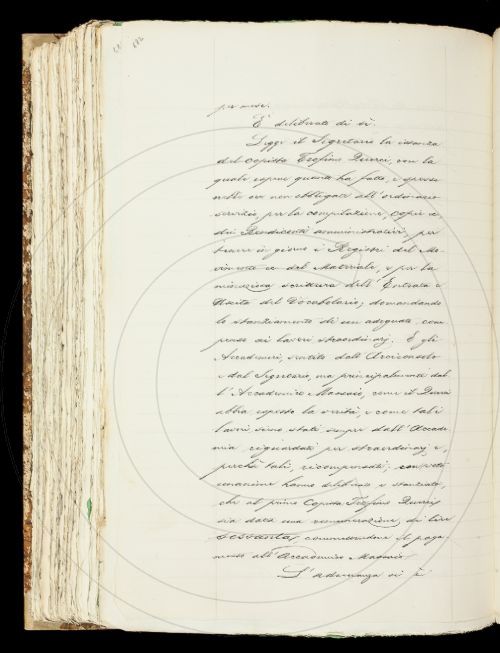 per mese.
È deliberato di sì.
Legge il Segretario la istanza
del Copista Trofimo Querci, con la
quale espone quanto ha fatto, e spesso
nelle ore non obbligate all'ordinario
servizio, per la compilazione, copie ec
dei Rendiconti amministrativi, per
tenere in giorno i Registri del Mo-
vimento ec del Materiale, e per la
minuziosa scrittura dell'Entrata e
Uscita del Vocabolario; domandando
lo stanziamento di un adeguato com
penso ai lavori straordinarj. E gli
Accademici, sentito dall'Arciconsolo
e dal Segretario, ma principalmente dal
l'Accademico Massaio, come il Querci
abbia esposto la verità, e come tali
lavori sieno stati sempre dall'Accade-
mia riguardati per straordinarj e,
perchè tali, ricompensati;
hanno deliberato e stanziato,
che al primo Copista Trofimo Querci
sia data una remunerazione di lire
sessanta, commettendone il paga-
mento all'Accademico Massaio.
L'adunanza si è